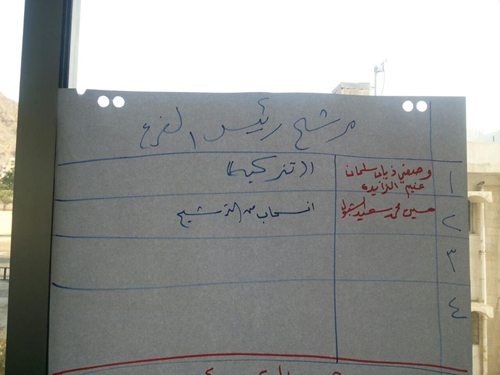 مرشح رئيس الفرع
١ وصفي ذياب سلمان "تزكية"
غنيم
٢ حسين محمد سعيد انسحاب من الترشيح
٣
٤